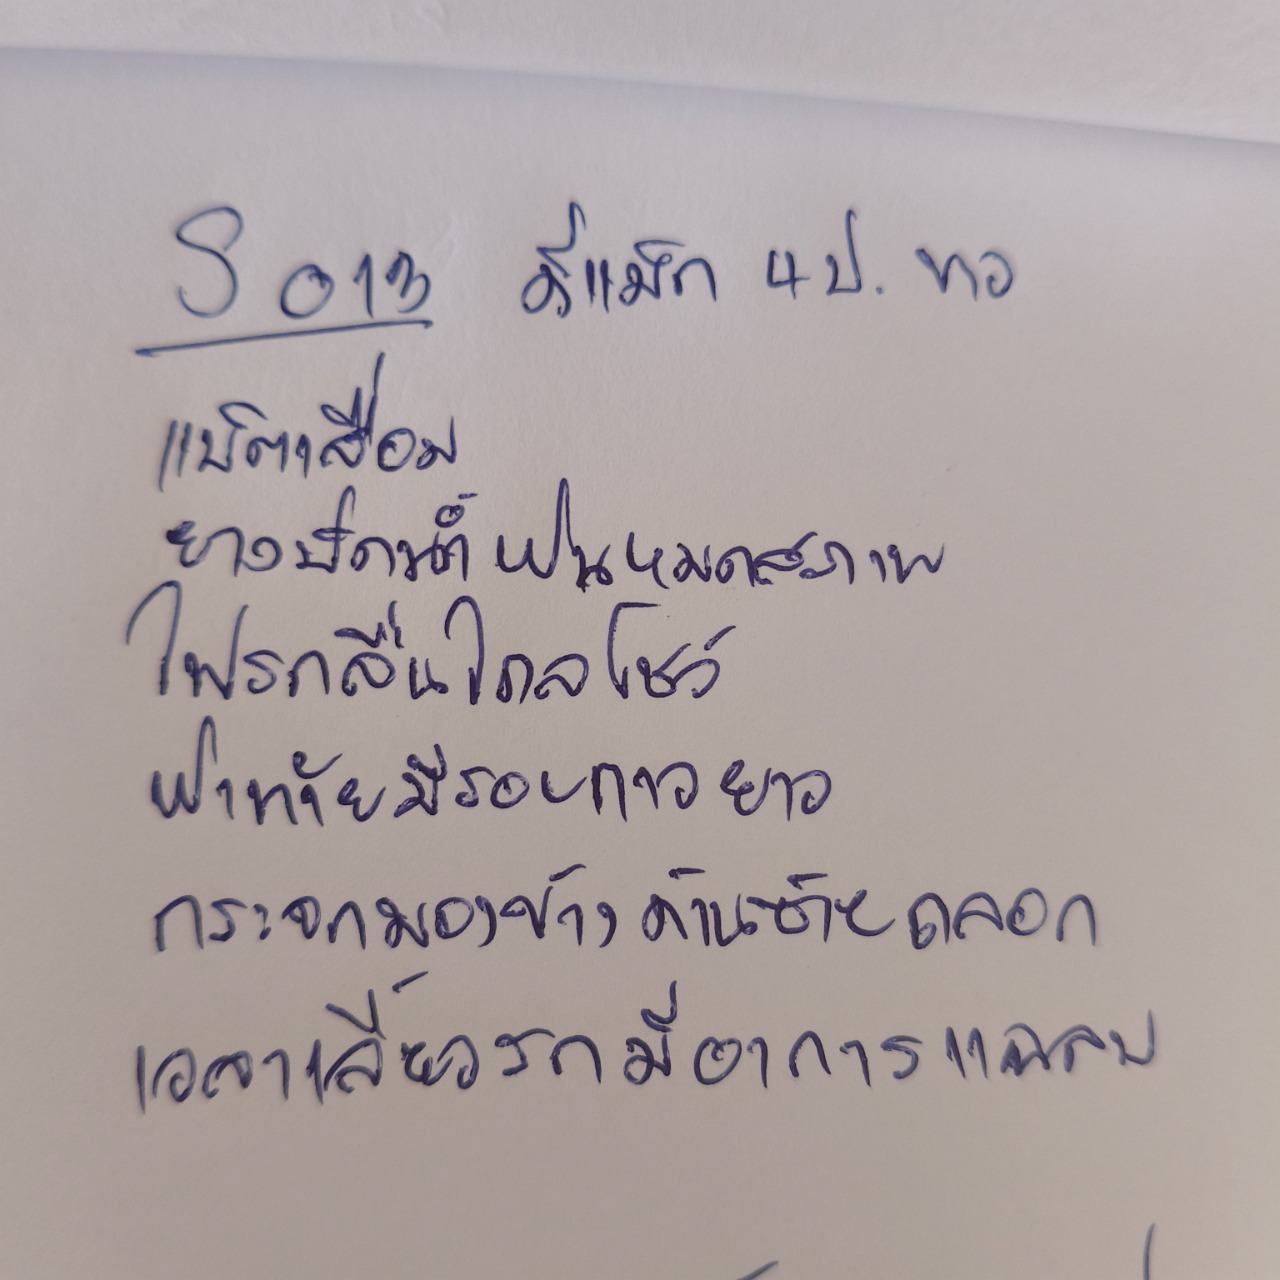 S 013 ดีแม็ก 4ป. ขาว
แบ็ตเสื่อม
ยางปัดน้ำฝนหมดสภาพ
ไฟรถลื่นไถลโชว์
ฝาท้ายมีรอยกาวยาว
กระจกมองข้างด้านซ้ายถลอก
เวลาเลี้ยวรถมีอาการแฉลบ